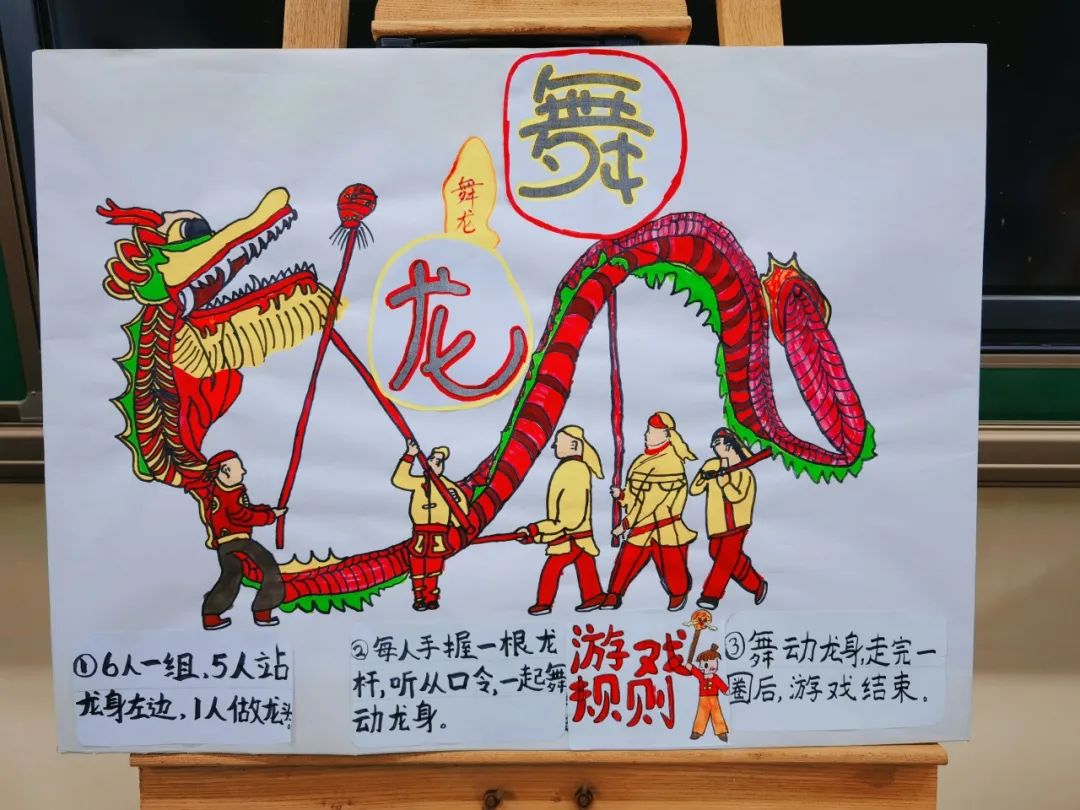 舞
舞
龙
龙
①6人一组,5人站
龙身左边,1人做龙头。
②每人手握一根龙
杆,听从口令,一起舞
动龙身。
游戏
规则
③舞动龙身,走完一
圈后,游戏结束。